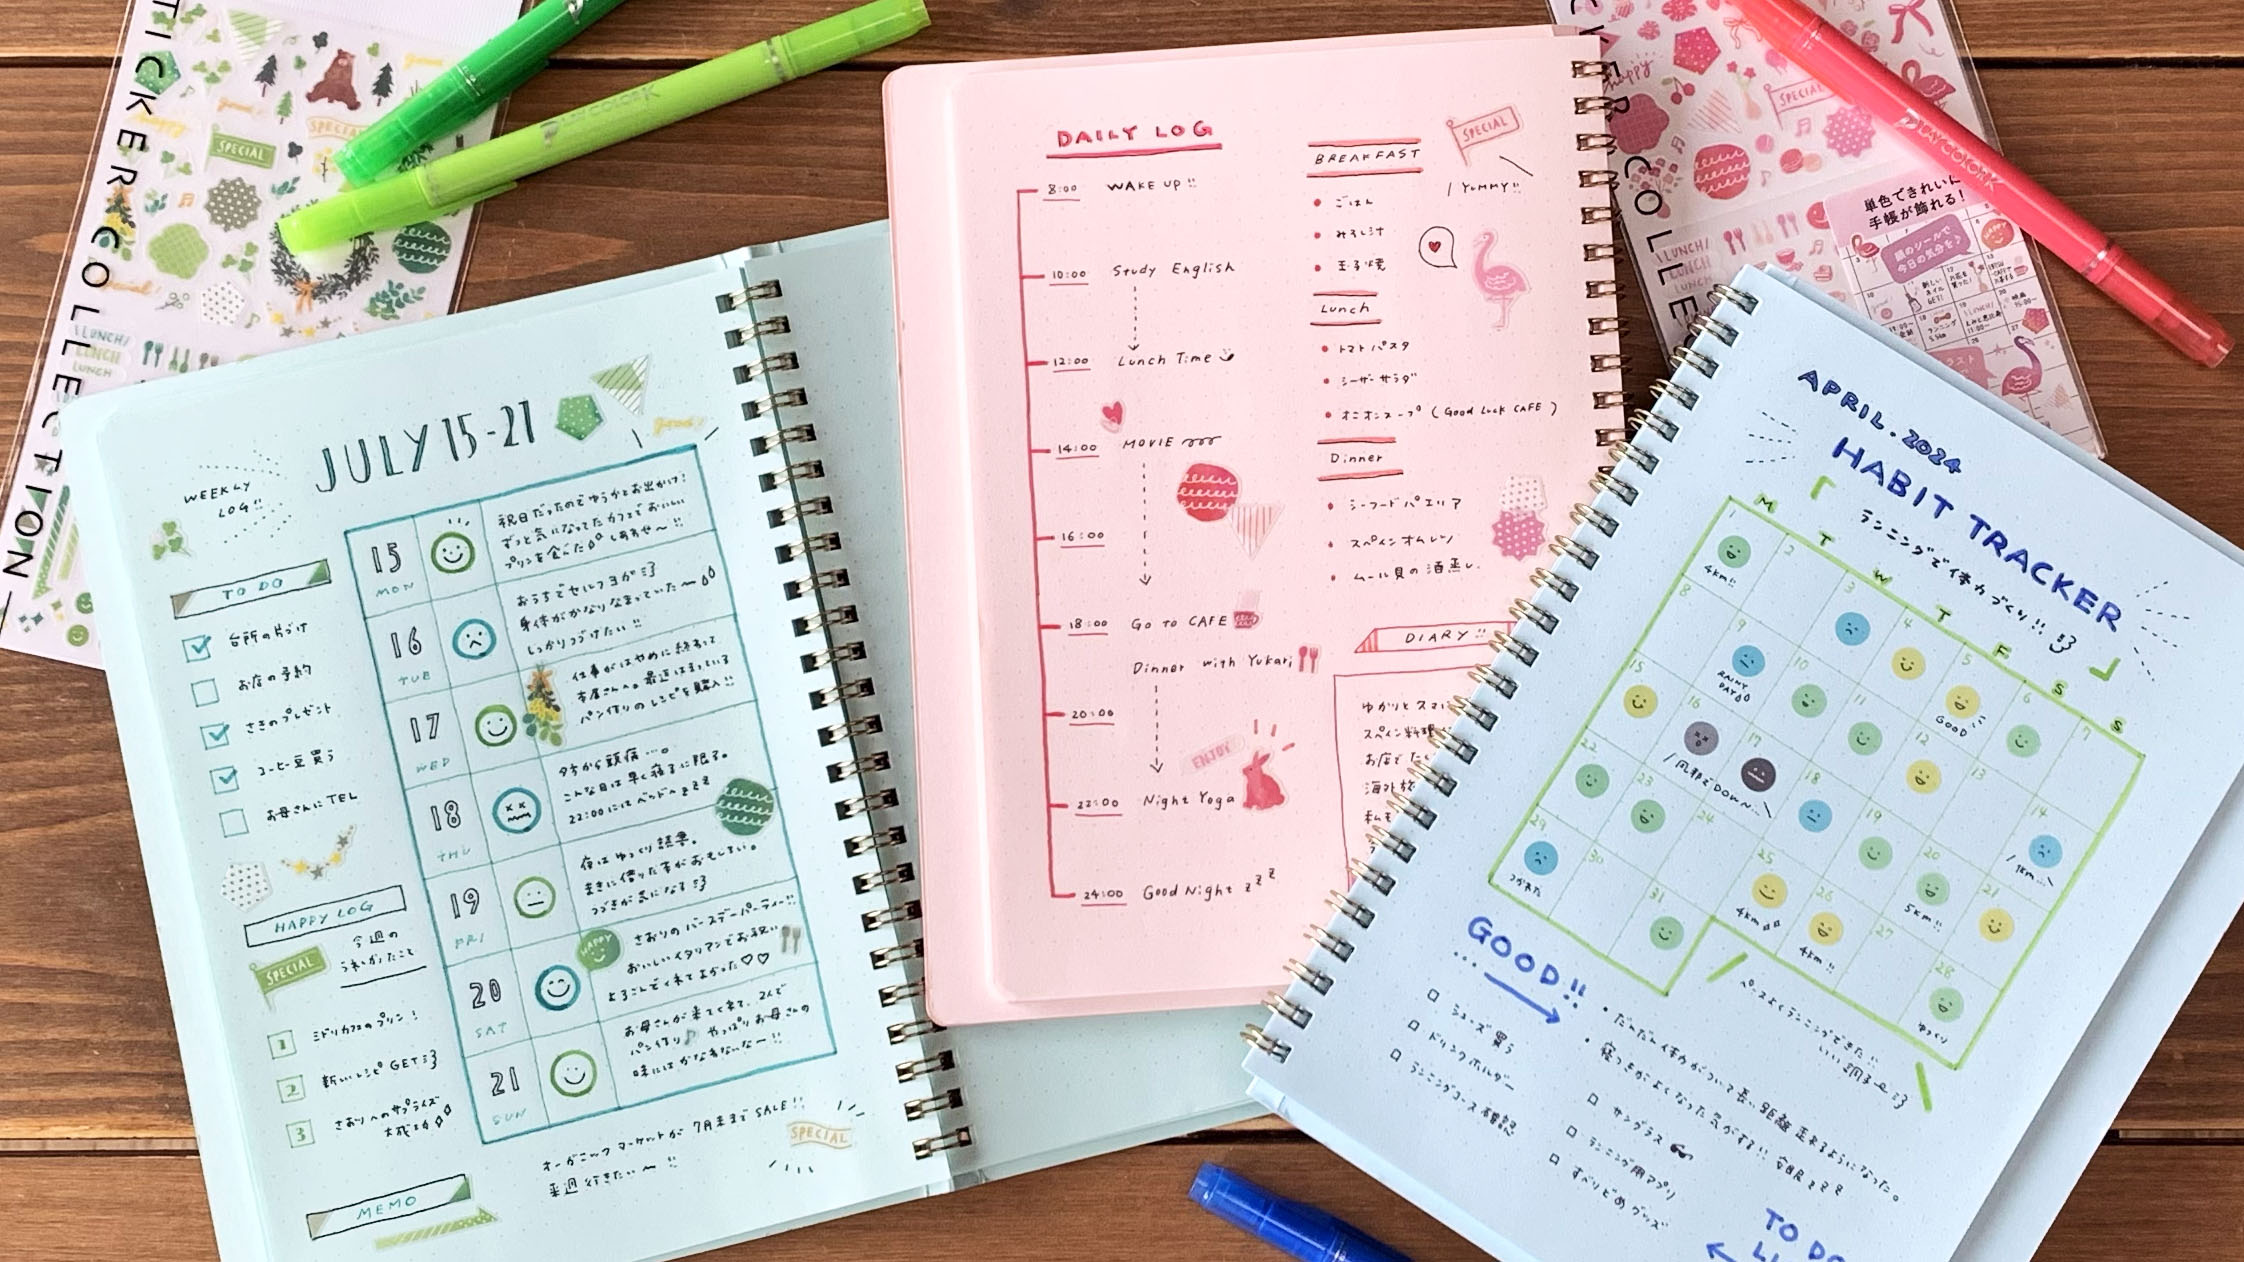 STICKER COLLECTION
SPECIAL
LUNCH!
LUNCH
LUNCH
PLAYCOLOR K
JULY 15-21
WEEKLY
LOG!!
good!
TO DO
台所の片づけ
お店の予約
さきのプレゼント
コーヒー豆買う
お母さんにTEL
HAPPY LOG
SPECIAL
今週の
うれしかったこと
1 ミドリカフェのプリン!
2 新しいレシピGET
3 さおりへのサプライズ
大成功
MEMO
15 MON
祝日だったのでゆうかとお出かけ!
ずっと気になってたカフェでおいしい
プリンを食べた しあわせ〜!!
16 TUE
おうちでセルフヨガ
身体がかなりなまっていた〜
しっかりつづけたい!!
17 WED
仕事がはやめに終わって
本屋さんへ。最近はまっている
パン作りのレシピを購入!!
18 THU
夕方から頭痛…。
こんな日は早く寝るに限る。
22:00にはベッドへzzz
19 FRI
夜はゆっくり読書。
まきに借りた本がおもしろい。
つづきが気になる
20 SAT
HAPPY
さおりのバースデーパーティー!!
おいしいイタリアンでお祝い
よろこんでくれてよかった♡♡
21 SUN
お母さんが来てくれて、2人で
パン作り♪ やっぱりお母さんの
味にはかなわないな〜!!
オーガニックマーケットが 7月末までSALE!!
来週行きたい〜!!
SPECIAL
DAILY LOG
8:00 WAKE UP!!
10:00 Study English
12:00 Lunch Time
14:00 MOVIE
16:00
18:00 Go to CAFE
Dinner with Yukari
20:00
ENJOY
22:00 Night Yoga
24:00 Good Night zzz
SPECIAL
BREAKFAST
YUMMY!!
・ごはん
・みそ汁
・玉子焼
Lunch
・トマトパスタ
・シーザーサラダ
・オニオンスープ (Good Luck CAFE)
Dinner
・シーフードパエリア
・スペインオムレツ
・ムール貝の酒蒸し
DIARY!!
ゆかりとスマ
スペイン料理
お店でたく
海外旅
私も
happy
SPECIAL
LUNCH!
LUNCH
LUNCH
単色できれいに
手帳が飾れる!
顔のシールで
今日の気分を♪
PLAYCOLOR K
APRIL.2024
HABIT TRACKER
ランニングで体力づくり!!
M T W T F S S
1 2 3 4 5 6 7
4km!!
GOOD
8 9 10 11 12 13 14
RAINY
DAY
1km…
15 16 17 18 19 20 21
風邪でDOWN…
5km!!
22 23 24 25 26 27 28
4km
4km!!
ゆっくり
29 30 31
つかれた
ペースよくランニングできた!!
いい調子
GOOD!!
・だんだん体力がついて長い距離走れるようになった。
・寝つきがよくなった気がする!! 爆睡zzz
シューズ買う
ドリンクホルダー
ランニングコース確認
サングラス
ランニング用アプリ
すべりどめグッズ
TO DO